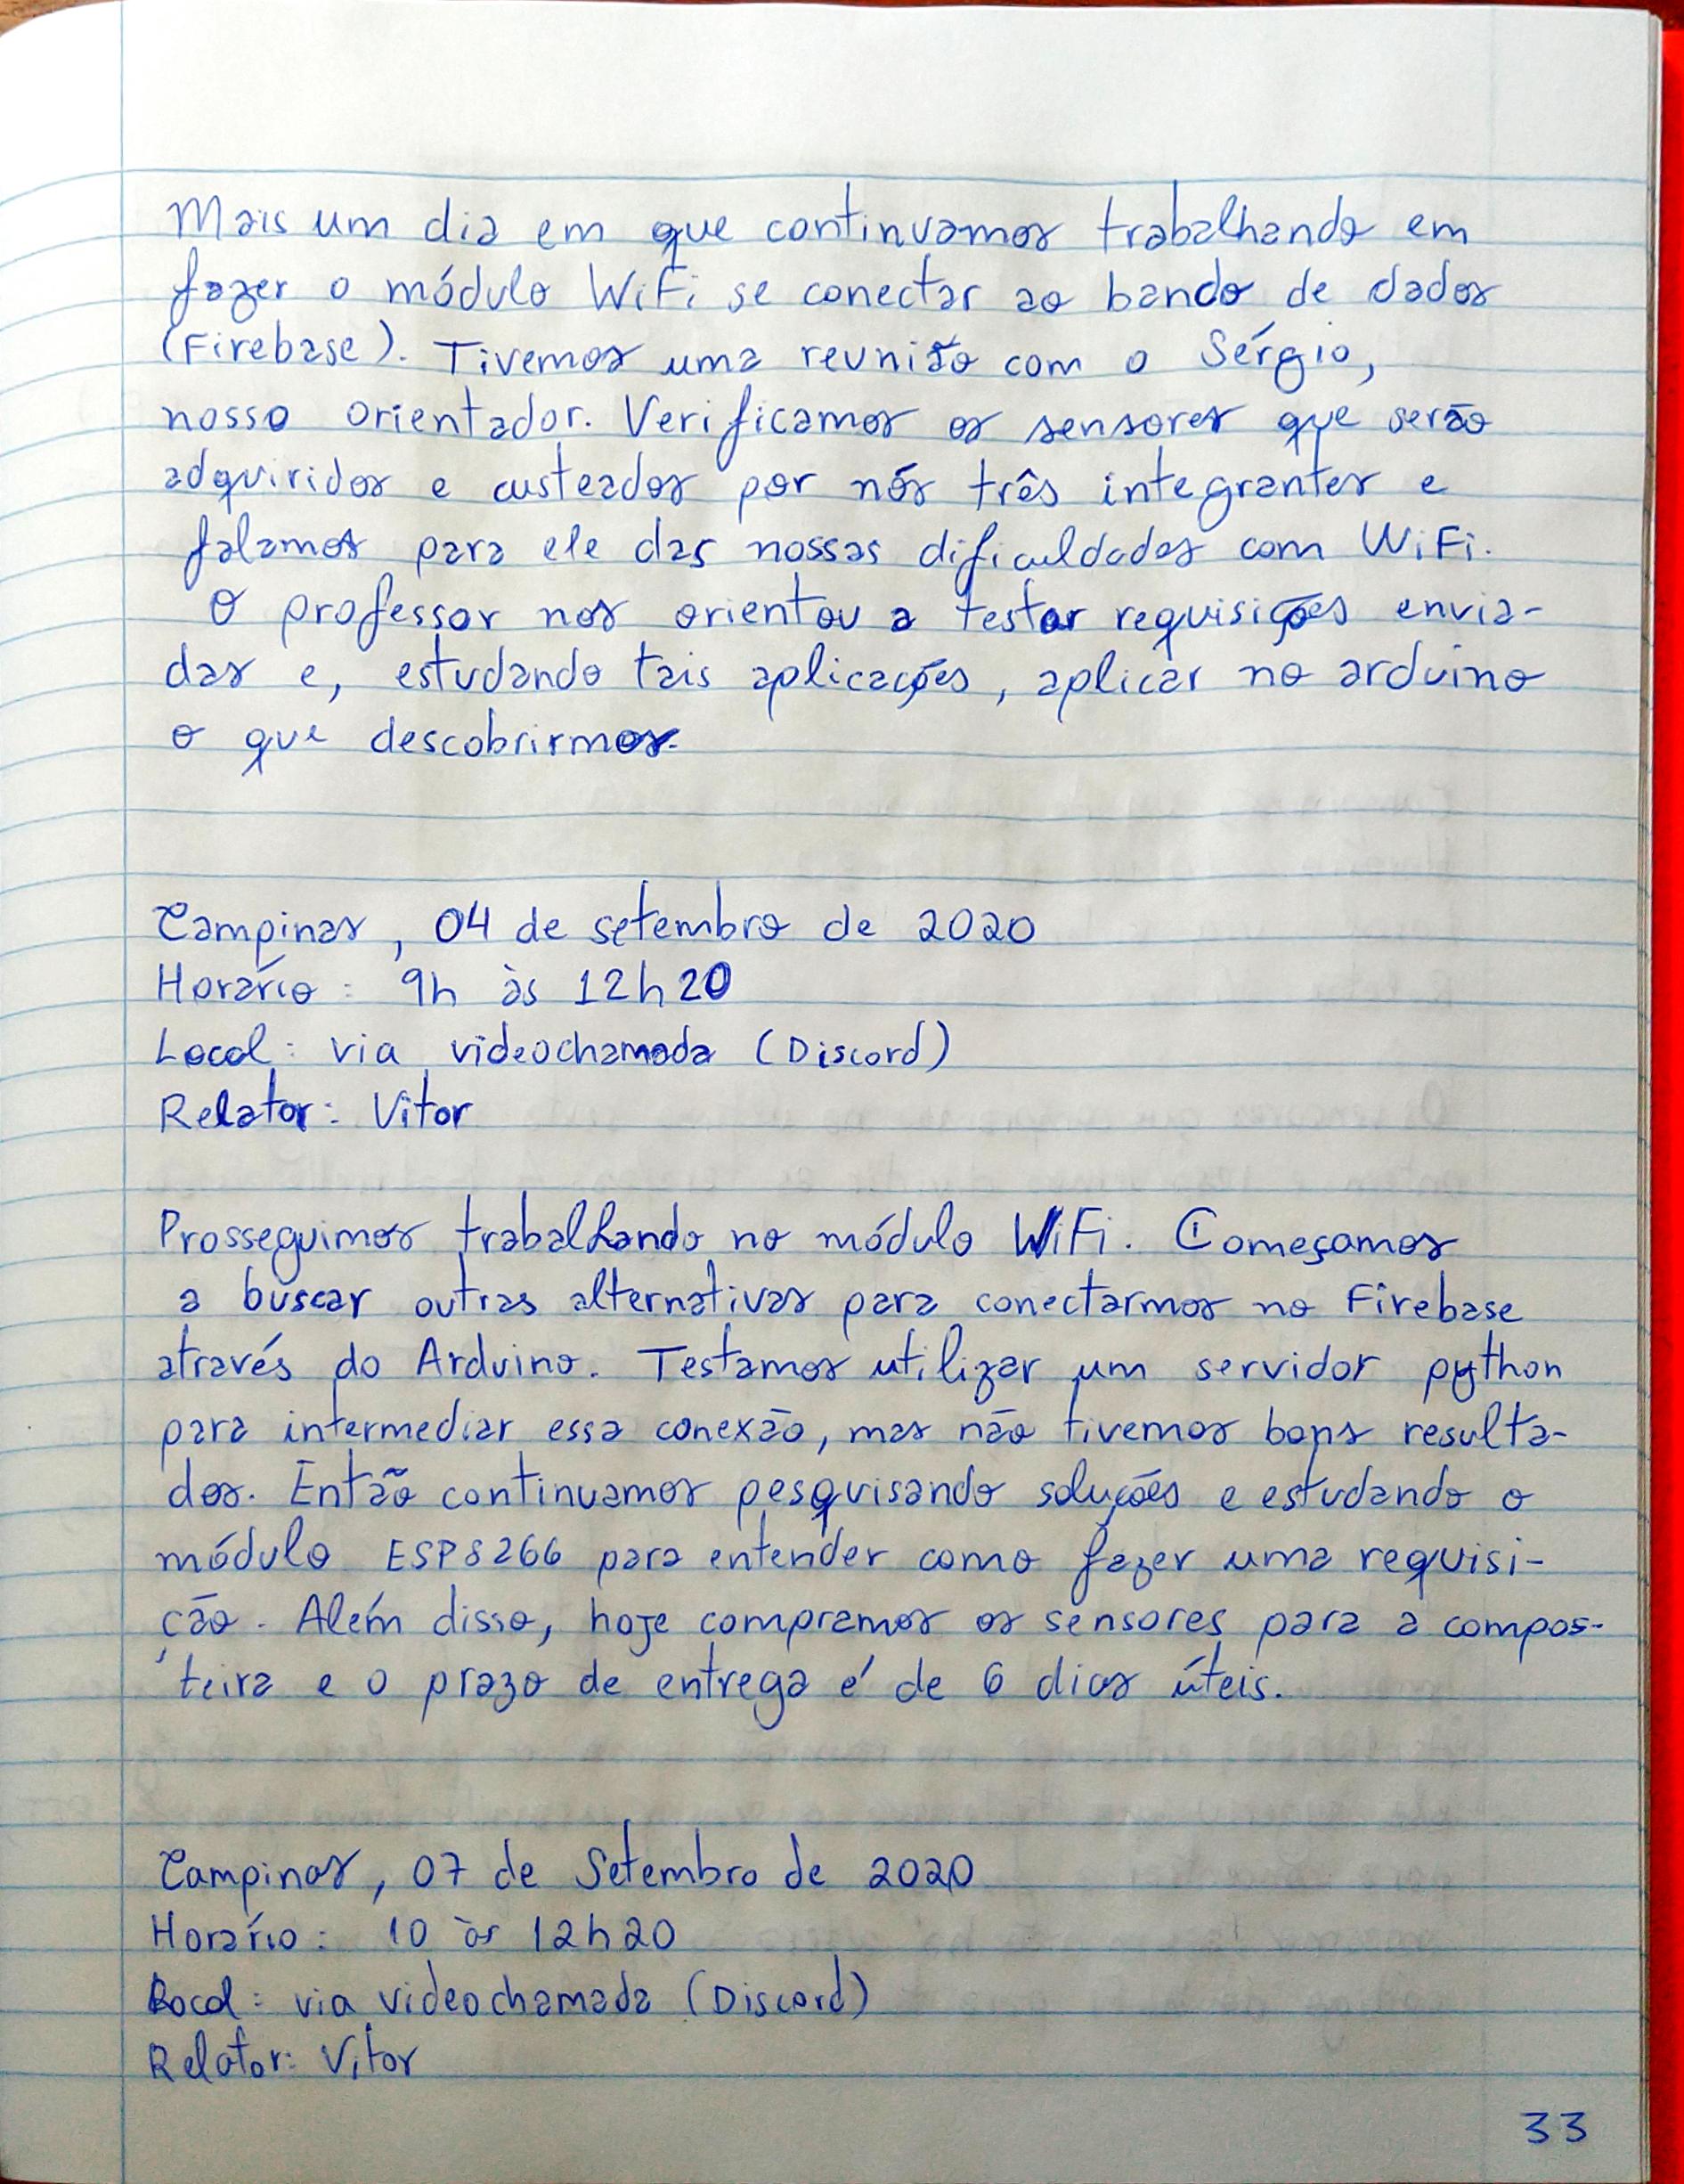 Mais um dia em que continuamos trabalhando em
fazer o módulo WiFi se conectar ao bando de dados
(Firebase). Tivemos uma reunião com o Sérgio,
nosso orientador. Verificamos os sensores que serão
adquiridos e custeados por nós três integrantes e
falamos para ele das nossas dificuldades com WiFi.
O professor nos orientou a testar requisições envia-
das e, estudando tais aplicações, aplicar no arduino
o que descobrirmos.
Campinas, 04 de setembro de 2020
Horário: 9h às 12h20
Local: via videochamada (Discord)
Relator: Vitor
Prosseguimos trabalhando no módulo WiFi. Começamos
a buscar outras alternativas para conectarmos no Firebase
através do Arduino. Testamos utilizar um servidor python
para intermediar essa conexão, mas não tivemos bons resulta-
dos. Então continuamos pesquisando soluções e estudando o
módulo ESP8266 para entender como fazer uma requisi-
ção. Além disso, hoje compramos os sensores para a compos-
teira e o prazo de entrega é de 6 dias úteis.
Campinas, 07 de Setembro de 2020
Horário: 10 às 12h20
Local: via videochamada (Discord)
Relator: Vitor
33